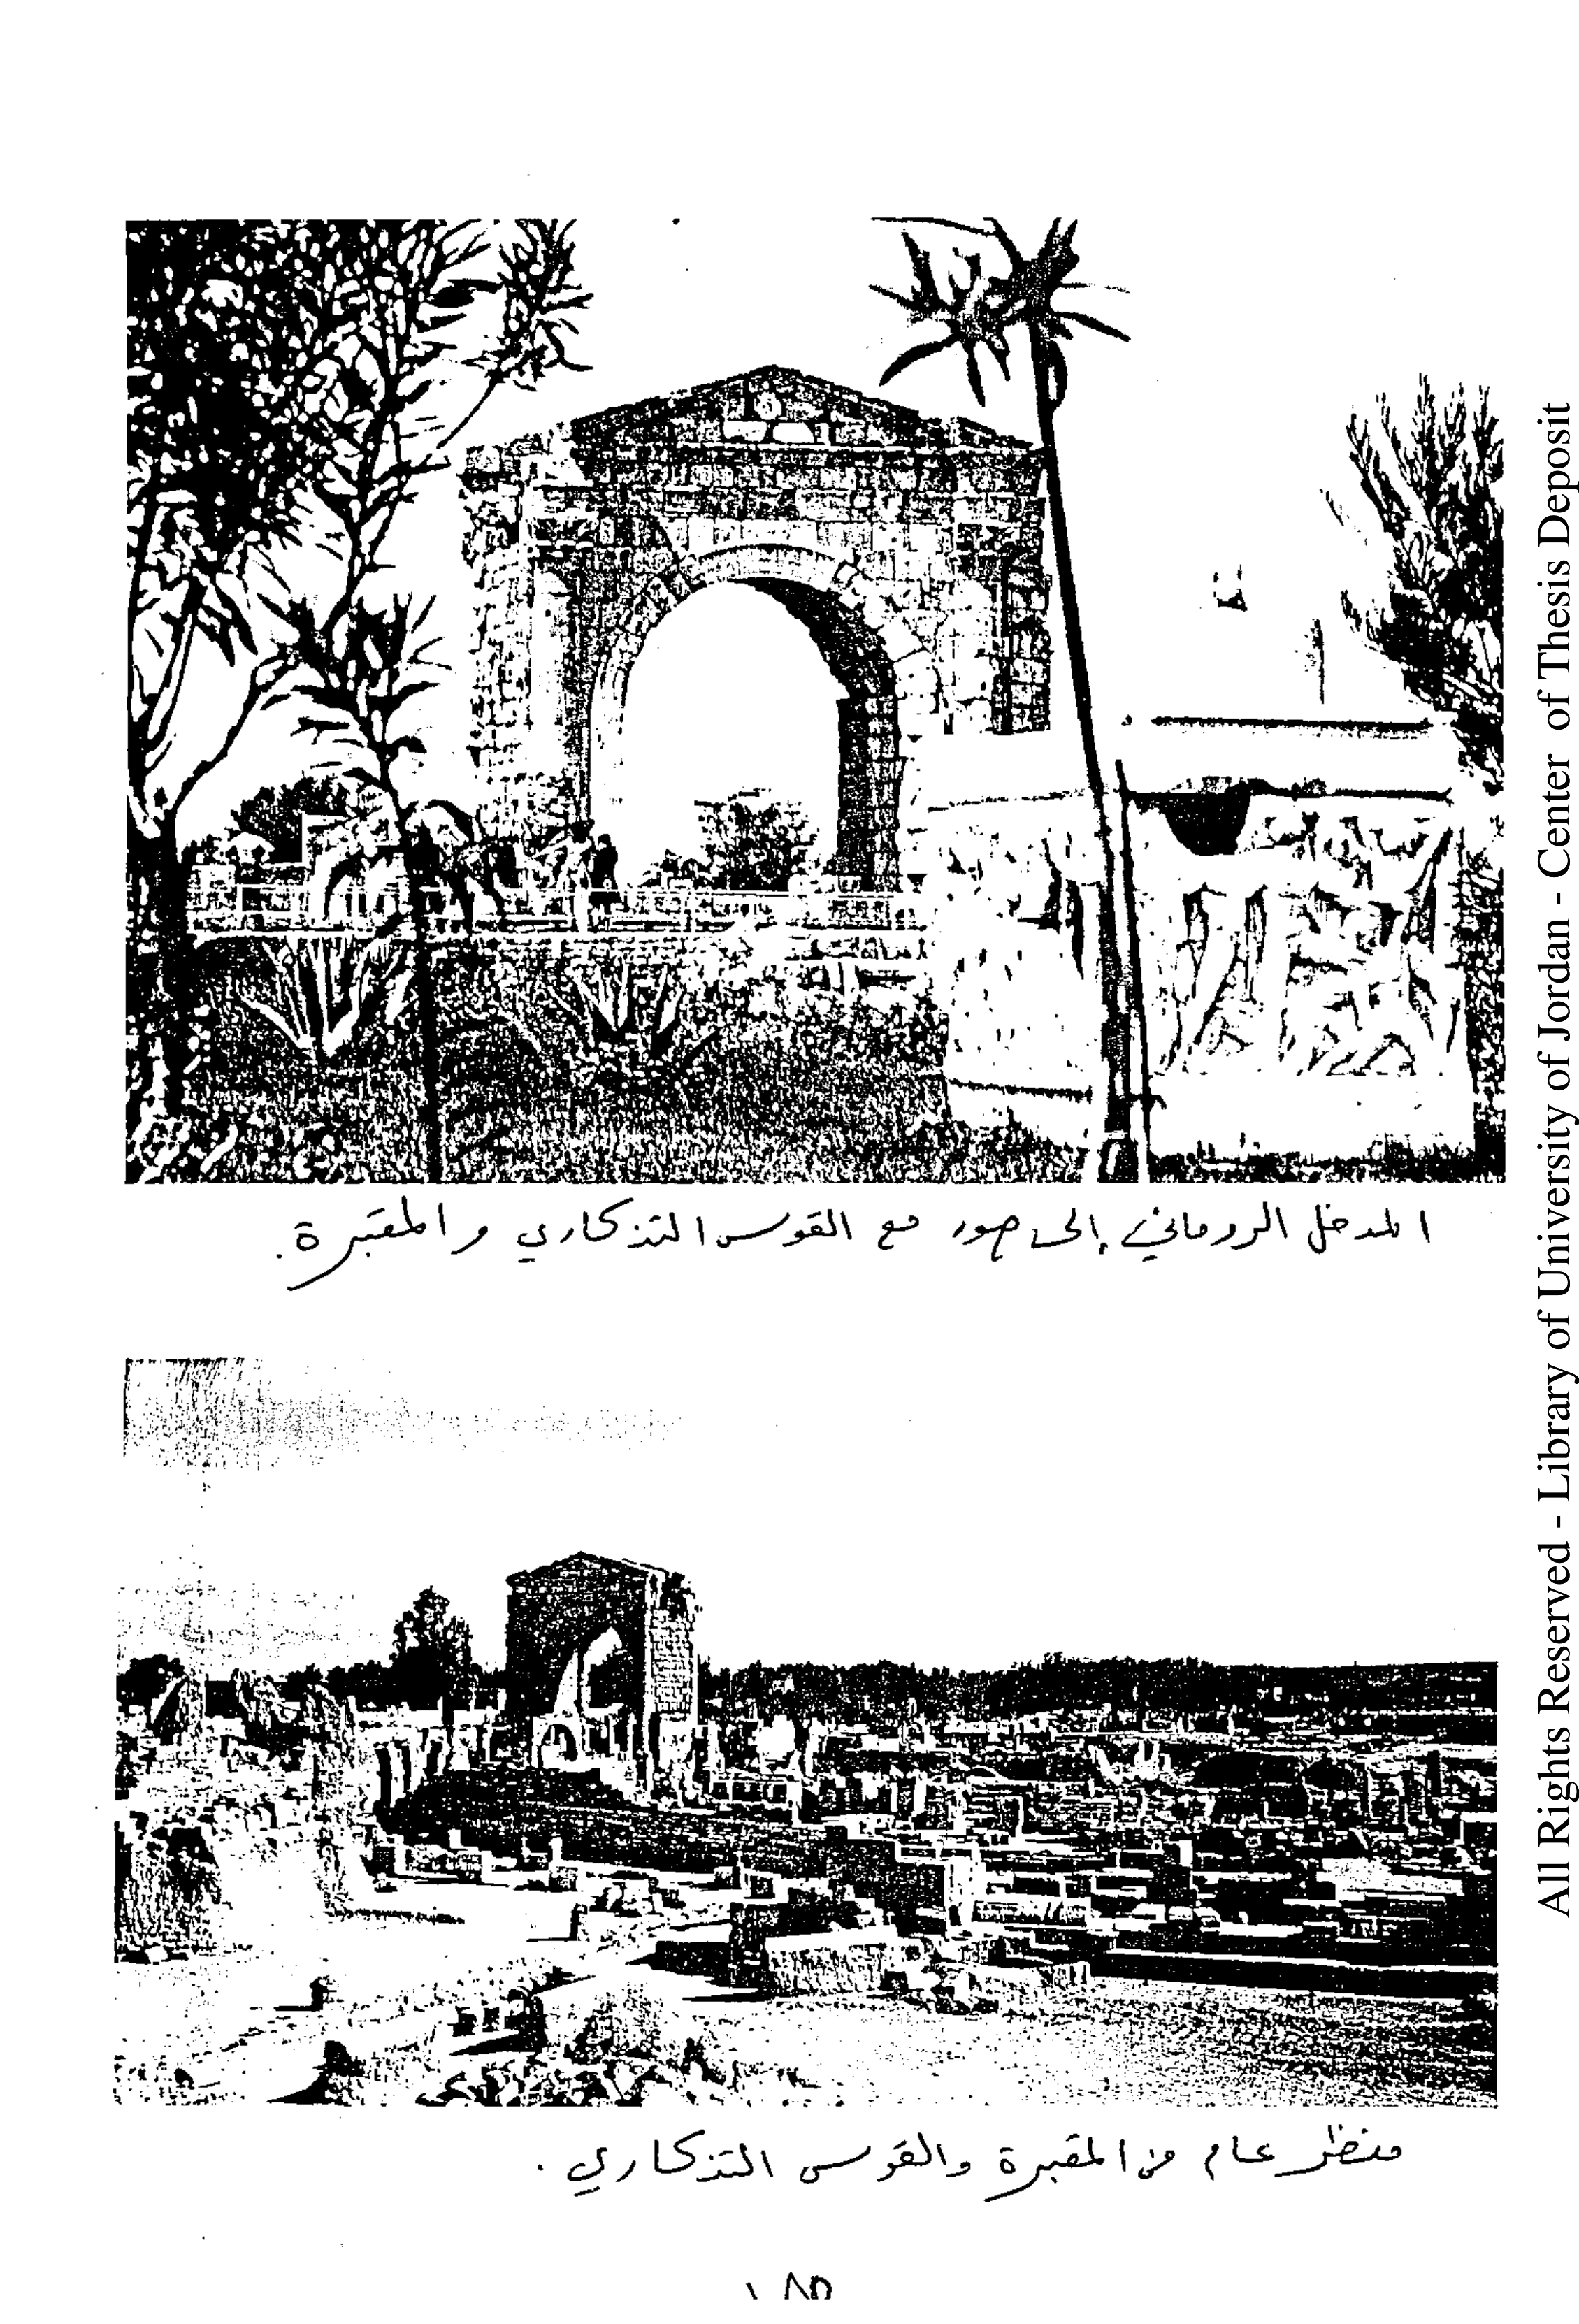 المدخل الروماني إلى صور مع القوس التذكاري والمقبرة.
منظر عام من المقبرة والقوس التذكاري.
١٨٥
All Rights Reserved - Library of University of Jordan - Center of Thesis Deposit